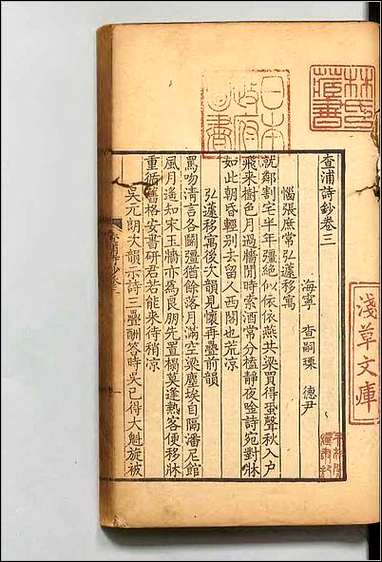 查浦詩鈔卷三
海寧 查嗣瑮 德尹
惱張庶常弘蘧移寓
就鄰割宅半年彊絕似依依燕共梁買得蛩聲秋入戶
飛來樹色月過牆閒時索酒常分榼靜夜唫詩宛對牀
如此朝昏輕別去留人西閣也荒凉
弘蘧移寓後次韻見懷再疊前韻
罵吻清言各鬬彊猶餘落月滿空梁塵埃自隔潘尼館
風月遙知宋玉牆亦爲良朋先置榻莫逢熱客便移牀
重循舊格安書研君若能來待稍凉
吳元朗大韻示詩三疊酬答時吳已得大魁旋被
林氏藏書
日本政府圖書
淺草文庫